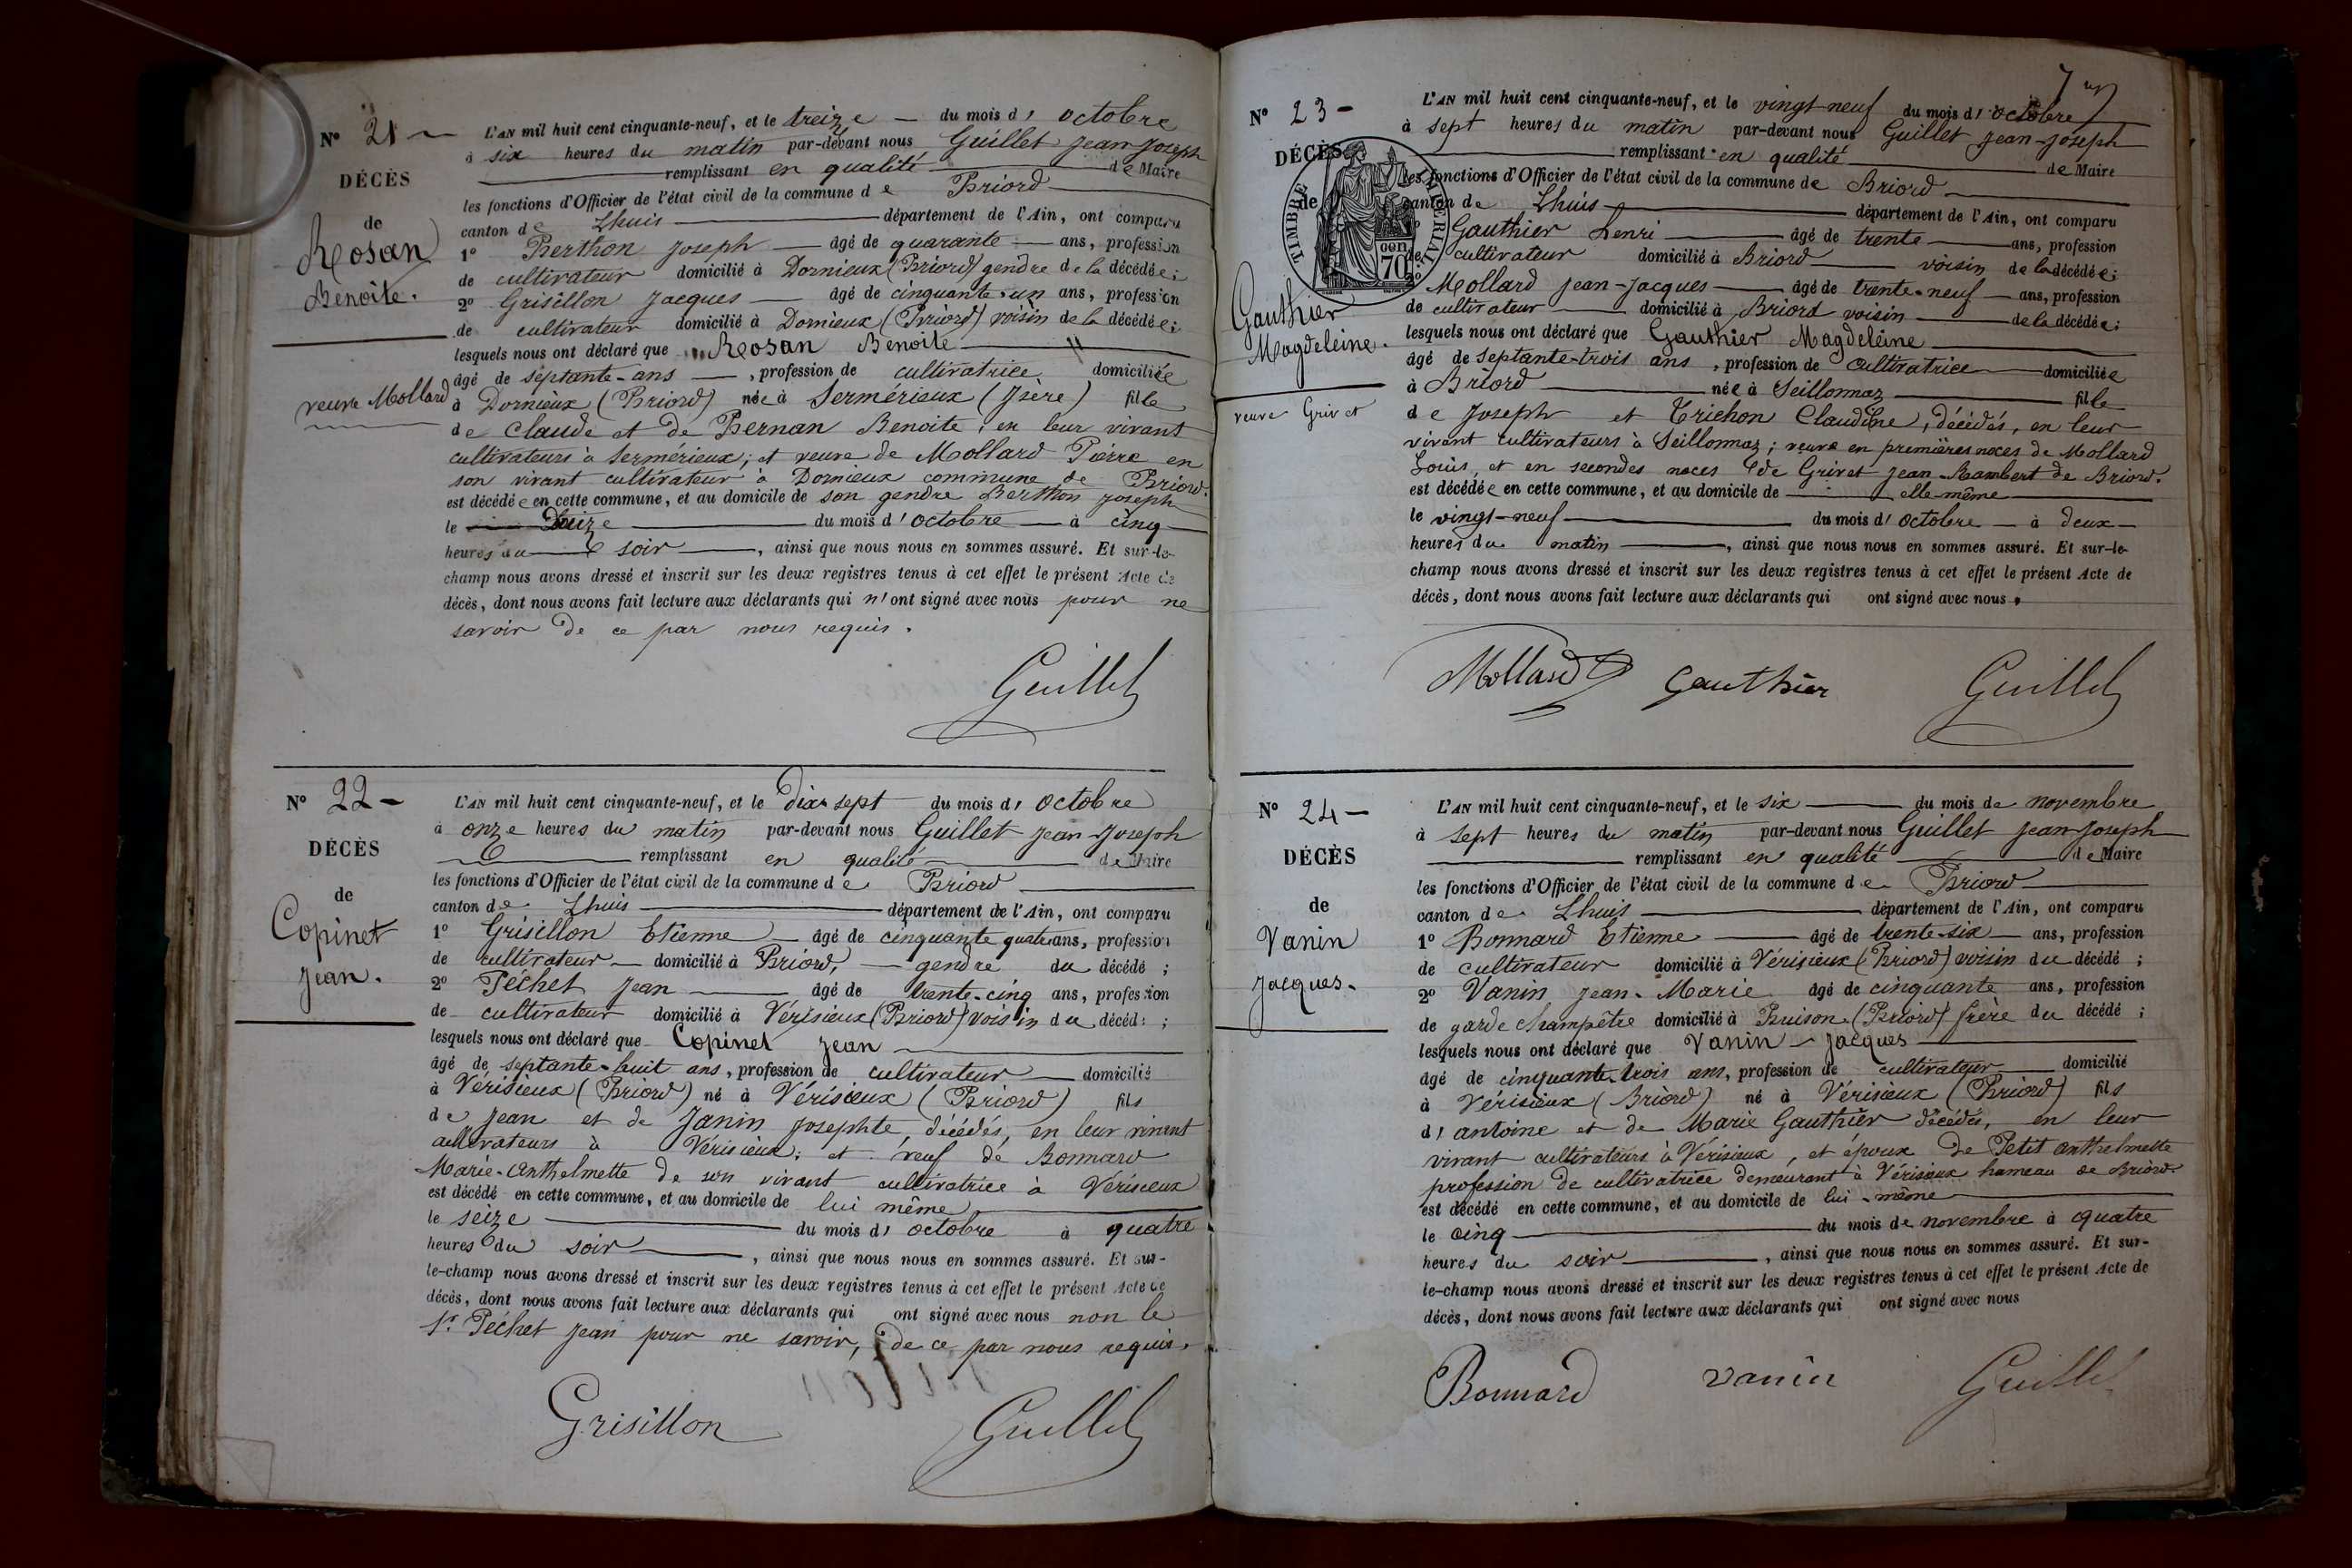 N° 21 –
DÉCÈS
de
Rosan
Benoite.
veuve Mollard
L'AN mil huit cent cinquante-neuf, et le treize — du mois d' octobre
à six heures du matin par-devant nous Guillet jean-joseph
remplissant en qualité de Maire
les fonctions d'Officier de l'état civil de la commune de Briord
canton de Lhuis département de l'Ain, ont comparu
1° Berthon joseph — âgé de quarante — ans, profession
de cultivateur domicilié à Dornieux (Briord) gendre de la décédée;
2° Grisillon jacques — âgé de cinquante-un ans, profession
de cultivateur domicilié à Dornieux (Briord) voisin de la décédée;
lesquels nous ont déclaré que Rosan Benoite
âgé de septante-ans —, profession de cultivatrice domiciliée
à Dornieux (Briord) née à Sermérieux (Isère) fille
de Claude et de Bernan Benoite, en leur vivant
cultivateurs à Sermérieux; et veuve de Mollard Pierre en
son vivant cultivateur à Dornieux commune de Briord.
est décédée en cette commune, et au domicile de son gendre Berthon joseph
le Douze du mois d' octobre — à cinq
heures du soir —, ainsi que nous nous en sommes assuré. Et sur-le-
champ nous avons dressé et inscrit sur les deux registres tenus à cet effet le présent Acte de
décès, dont nous avons fait lecture aux déclarants qui n'ont signé avec nous pour ne
savoir de ce par nous requis.
Guillet
N° 22 –
DÉCÈS
de
Copinet
jean.
L'AN mil huit cent cinquante-neuf, et le dix-sept du mois d' octobre
à onze heures du matin par-devant nous Guillet jean-joseph
remplissant en qualité de Maire
les fonctions d'Officier de l'état civil de la commune de Briord
canton de Lhuis département de l'Ain, ont comparu
1° Grisillon Etienne — âgé de cinquante quatre ans, profession
de cultivateur — domicilié à Briord, — gendre du décédé ;
2° Péchet jean — âgé de trente-cinq ans, profession
de cultivateur domicilié à Vérisieux (Briord) voisin du décédé ;
lesquels nous ont déclaré que Copinet jean
âgé de septante-huit ans, profession de cultivateur — domicilié
à Vérisieux (Briord) né à Vérisieux (Briord) fils
de jean et de Janin josephte, décédés, en leur vivant
cultivateurs à Vérisieux; et veuf de Bonnard
Marie-anthelmette de son vivant cultivatrice à Vérisieux
est décédé en cette commune, et au domicile de lui même
le seize du mois d' octobre à quatre
heures du soir —, ainsi que nous nous en sommes assuré. Et sur-
le-champ nous avons dressé et inscrit sur les deux registres tenus à cet effet le présent Acte de
décès, dont nous avons fait lecture aux déclarants qui ont signé avec nous non le
Sr. Péchet jean pour ne savoir, de ce par nous requis.
Grisillon Guillet
N° 23 –
DÉCÈS
de
TIMBRE IMPÉRIAL
70 cen
Gauthier
Magdeleine.
veuve Grivet
L'AN mil huit cent cinquante-neuf, et le vingt-neuf du mois d' octobre
à sept heures du matin par-devant nous Guillet jean-joseph
remplissant en qualité de Maire
les fonctions d'Officier de l'état civil de la commune de Briord
canton de Lhuis département de l'Ain, ont comparu
1° Gauthier henri — âgé de trente — ans, profession
de cultivateur domicilié à Briord — voisin de la décédée;
2° Mollard jean-jacques — âgé de trente-neuf — ans, profession
de cultivateur — domicilié à Briord voisin — de la décédée;
lesquels nous ont déclaré que Gauthier Magdeleine
âgé de septante-trois ans, profession de cultivatrice — domiciliée
à Briord née à Seillonnaz fille
de joseph et Trichon Claudine, décédés, en leur
vivant cultivateurs à Seillonnaz; veuve en premières noces de Mollard
Louis, et en secondes noces de Grivet jean-Rambert de Briord.
est décédée en cette commune, et au domicile de elle-même
le vingt-neuf du mois d' octobre — à deux
heures du matin —, ainsi que nous nous en sommes assuré. Et sur-le-
champ nous avons dressé et inscrit sur les deux registres tenus à cet effet le présent Acte de
décès, dont nous avons fait lecture aux déclarants qui ont signé avec nous.
Mollard Gauthier Guillet
N° 24 –
DÉCÈS
de
Vanin
jacques.
L'AN mil huit cent cinquante-neuf, et le six du mois de novembre
à sept heures du matin par-devant nous Guillet jean-joseph
remplissant en qualité de Maire
les fonctions d'Officier de l'état civil de la commune de Briord
canton de Lhuis département de l'Ain, ont comparu
1° Bonnard Etienne — âgé de trente-six — ans, profession
de cultivateur domicilié à Vérisieux (Briord) voisin du décédé ;
2° Vanin jean-Marie âgé de cinquante ans, profession
de garde champêtre domicilié à Buison (Briord) frère du décédé ;
lesquels nous ont déclaré que Vanin — jacques
âgé de cinquante-trois ans, profession de cultivateur — domicilié
à Vérisieux (Briord) né à Vérisieux (Briord) fils
d' antoine et de Marie Gauthier décédés, en leur
vivant cultivateurs à Vérisieux, et époux de Petit anthelmette
profession de cultivatrice demeurant à Vérisieux hameau de Briord
est décédé en cette commune, et au domicile de lui-même
le cinq du mois de novembre à quatre
heures du soir —, ainsi que nous nous en sommes assuré. Et sur-
le-champ nous avons dressé et inscrit sur les deux registres tenus à cet effet le présent Acte de
décès, dont nous avons fait lecture aux déclarants qui ont signé avec nous
Bonnard vanin Guillet